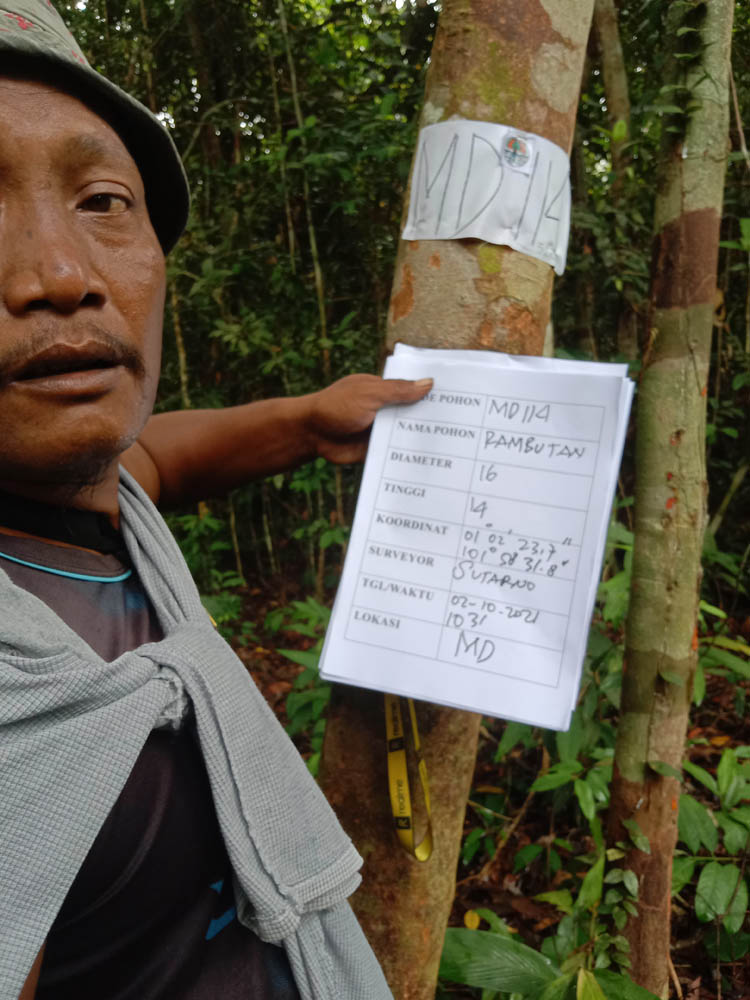 MD114
DE POHON MD114
NAMA POHON RAMBUTAN
DIAMETER 16
TINGGI 14
KOORDINAT 01° 02' 23,7"
101° 58' 31.8"
SURVEYOR SUTARNO
TGL/WAKTU 02-10-2021
1031
LOKASI MD
realme